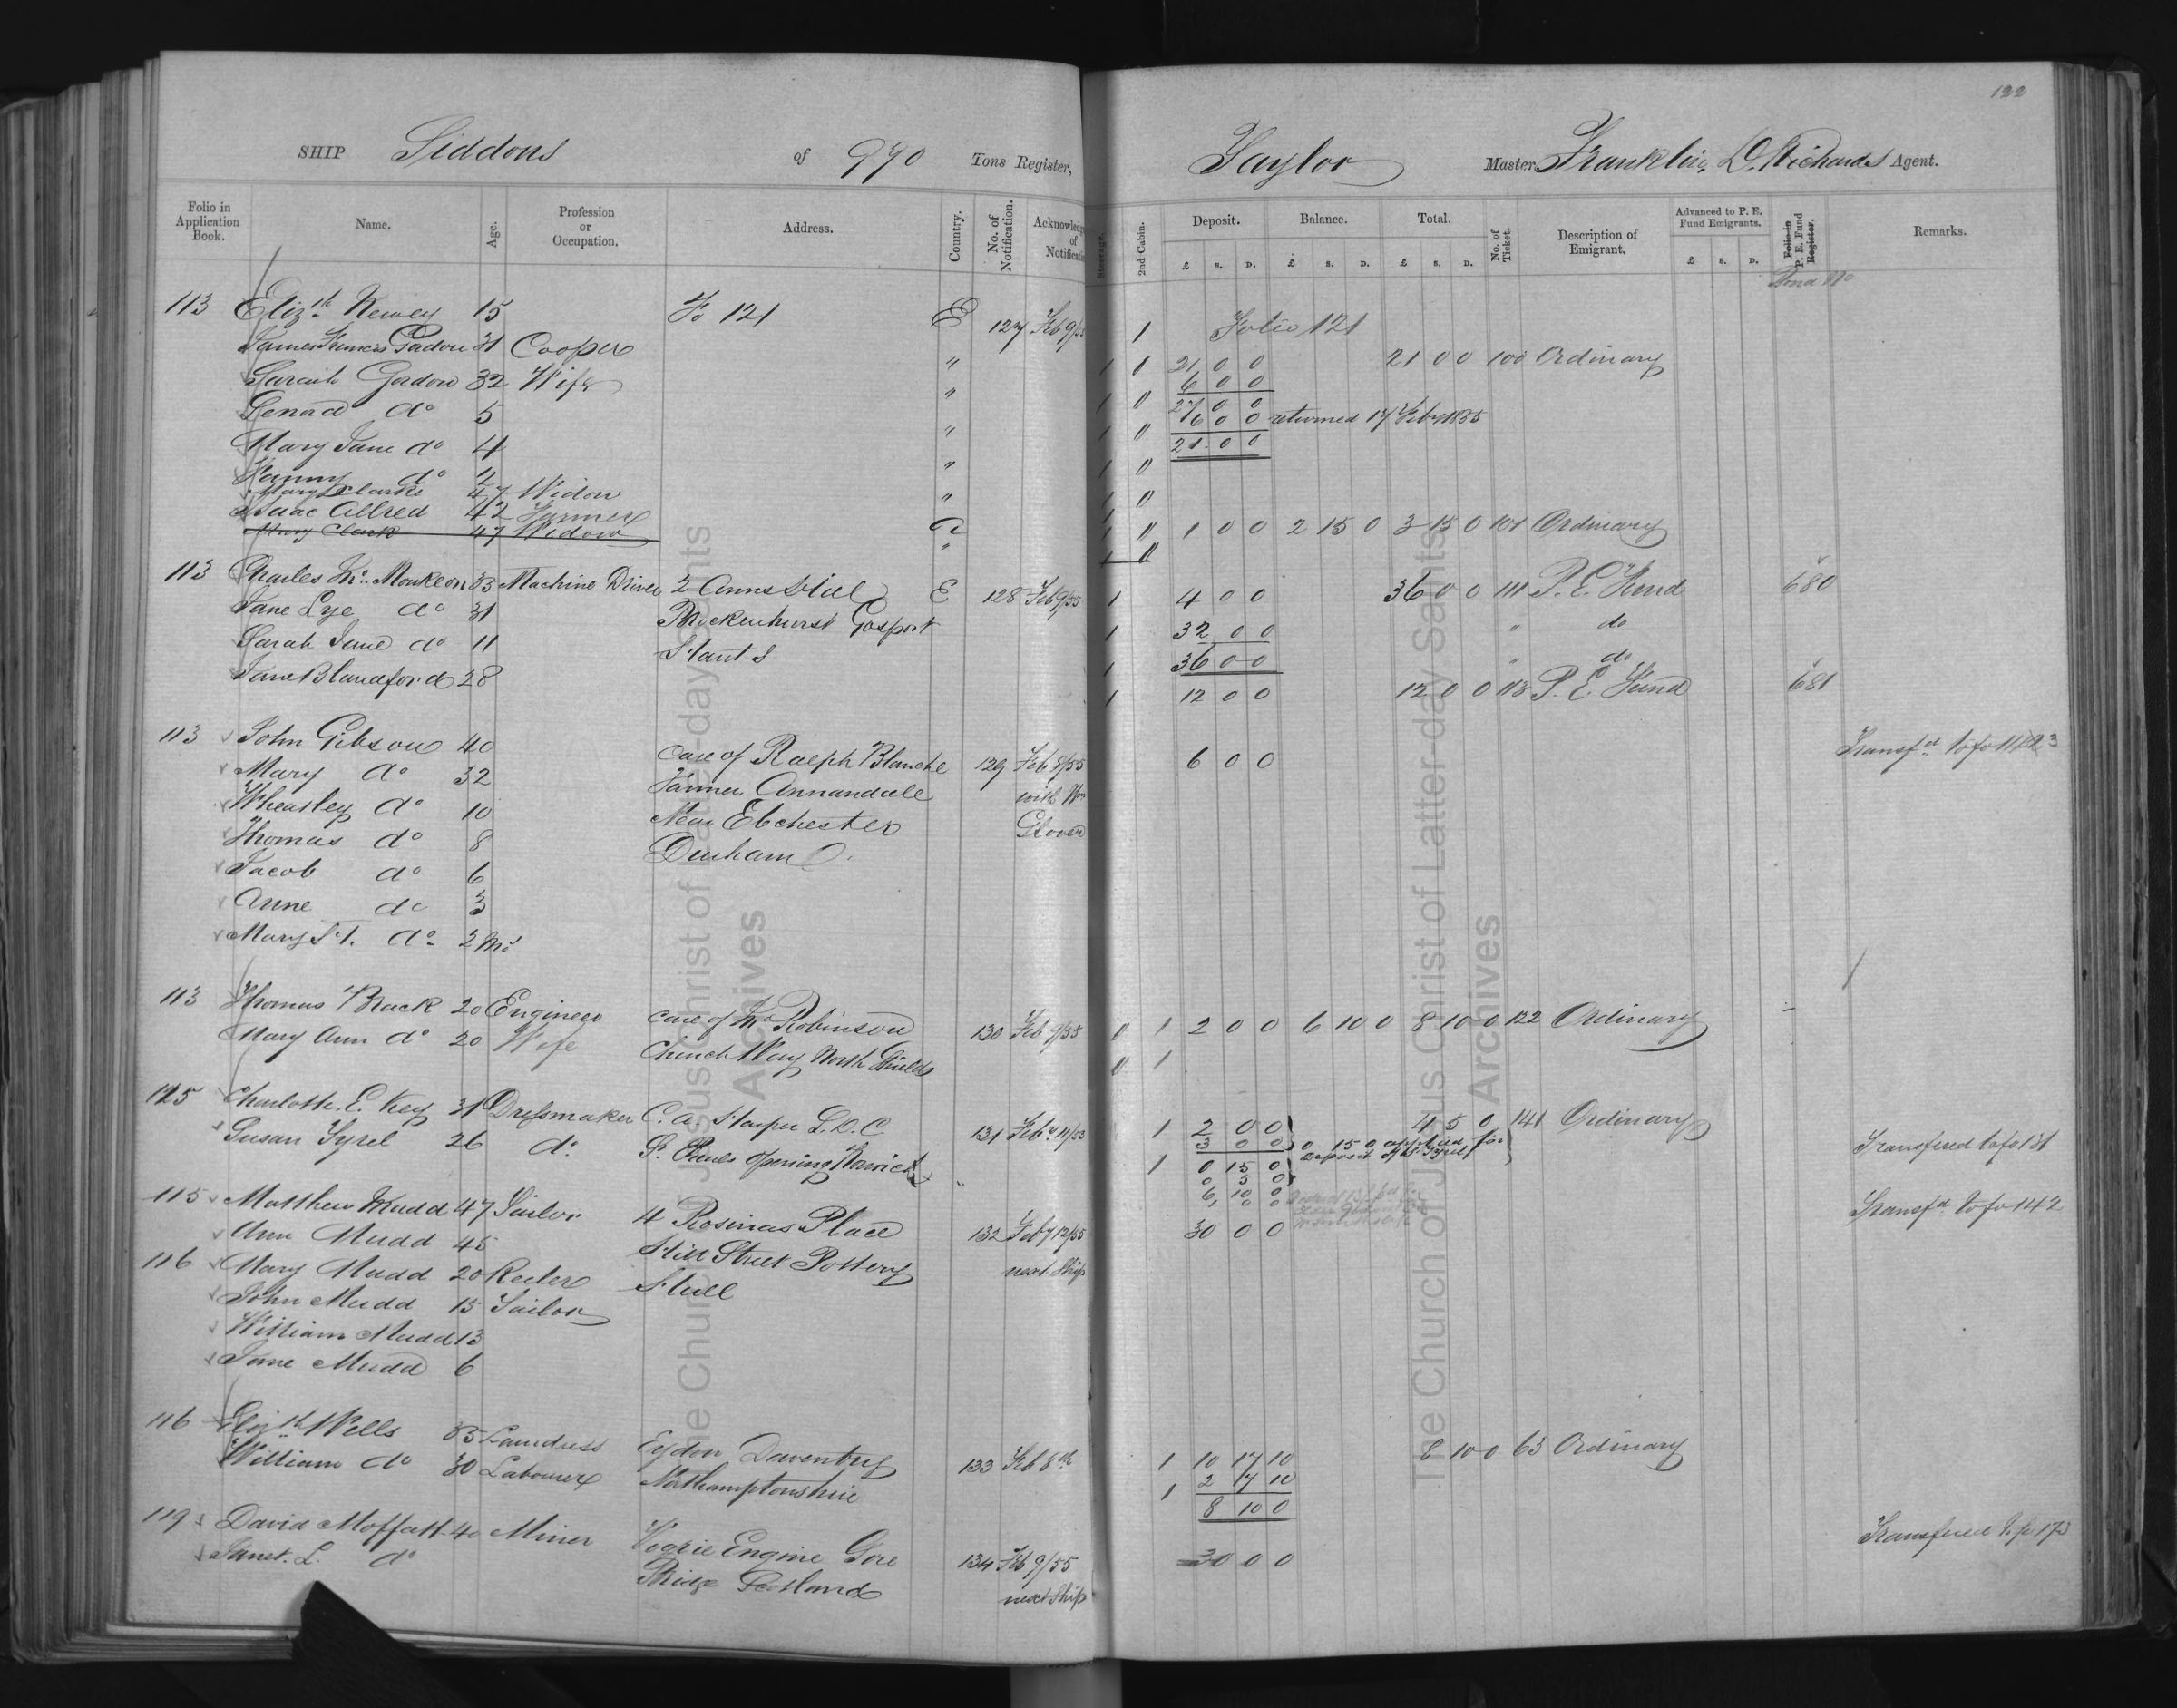 122
SHIP Siddons of 990 Tons Register, Taylor Master, Franklin D. Richards Agent.
Folio in Application Book. Name. Age. Profession or Occupation. Address. Country. No. of Notification. Acknowledg of Notificati Steerage. 2nd Cabin. Deposit. Balance. Total. No. of Ticket. Description of Emigrant. Advanced to P. E. Fund Emigrants. Folio in P. E. Fund Register. Remarks.
£ S. D. £ S. D. £ S. D. £ S. D.
113 Elizth 15 Fo 121 E 127 Feb 9/55 1 Folio 121
James Francis 31 Cooper " 1 21 0 0 21 0 0 100 Ordinary
Sarah Gordon 32 Wife " 1 6 0 0
do 5 " 1 27 0 0
6 0 0 returned 17 Feby 1855
Mary Jane do 4 " 1 21 0 0
do 2 "
Mary Clarke 47 Widow
Isaac Allred 42 Farmer 1 0 0 2 15 0 3 15 0 101 Ordinary
Mary Clark 47 Widow "
113 Charles Mc. 35 Machine Driver 2 Anns Hill E 128 Feb 9/55 1 4 0 0 36 0 0 111 P. E. Fund 680
Jane Lye do 31 Brockenhurst Gosport 1 32 0 0 " do
Sarah Jane do 11 Hants 1 36 0 0 " do
Jane Blandford 28 1 12 0 0 12 0 0 113 P. E. Fund 681
113 John Gibson 40 Care of Ralph Blanche 129 Feb 8/55 6 0 0 Transfd to fo 142 3
Mary do 32 Farmer Annandale with Wm
Wheatley do 10 Near Ebchester Glover
Thomas do 8 Durham
Jacob do 6
Anne do 3
Mary H. do 2 Ms
113 Thomas Brack 20 Engineer care of Mr Robinson 130 Feb 9/55 1 2 0 0 6 10 0 8 10 0 122 Ordinary
Mary Ann do 20 Wife Church Way North Shields 1
125 Charlotte. E. Key 31 Dressmaker C. A. Harper L. D. C 131 Feby 11/55 1 2 0 0 4 5 0 141 Ordinary
Susan Tyrel 26 do St. Pauls Opening Norwich 3 0 0 0 15 0 applied for Transfered to fo 131
1 0 15 0 Deposit of
0 5 0
6, 10 0
115 Matthew Mudd 47 Sailor 4 Rosinas Place 132 Feby 12/55 30 0 0 Transfd to fo 142
Ann Mudd 45 Hill Street Pottery next Ship
116 Mary Mudd 20 Reeler Hull
John Mudd 15 Sailor
William Mudd 13
Jane Mudd 6
116 Elizth Wells 33 Laundress Eydon Daventry 133 Feb 8th 1 10 17 10 8 10 0 63 Ordinary
William do 30 Labourer Northamptonshire 1 2 7 10
8 10 0
119 David Moffatt 40 Miner Vogrie Engine Gore 134 Feb 9/55 30 0 0 Transfered to fo 173
Janet. L. do Bridge Scotland next Ship
The Church of Jesus Christ of Latter-day Saints
Archives
The Church of Jesus Christ of Latter-day Saints
Archives